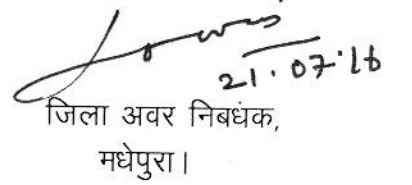 21.07.16
जिला अवर निबधंक,
मधेपुरा।